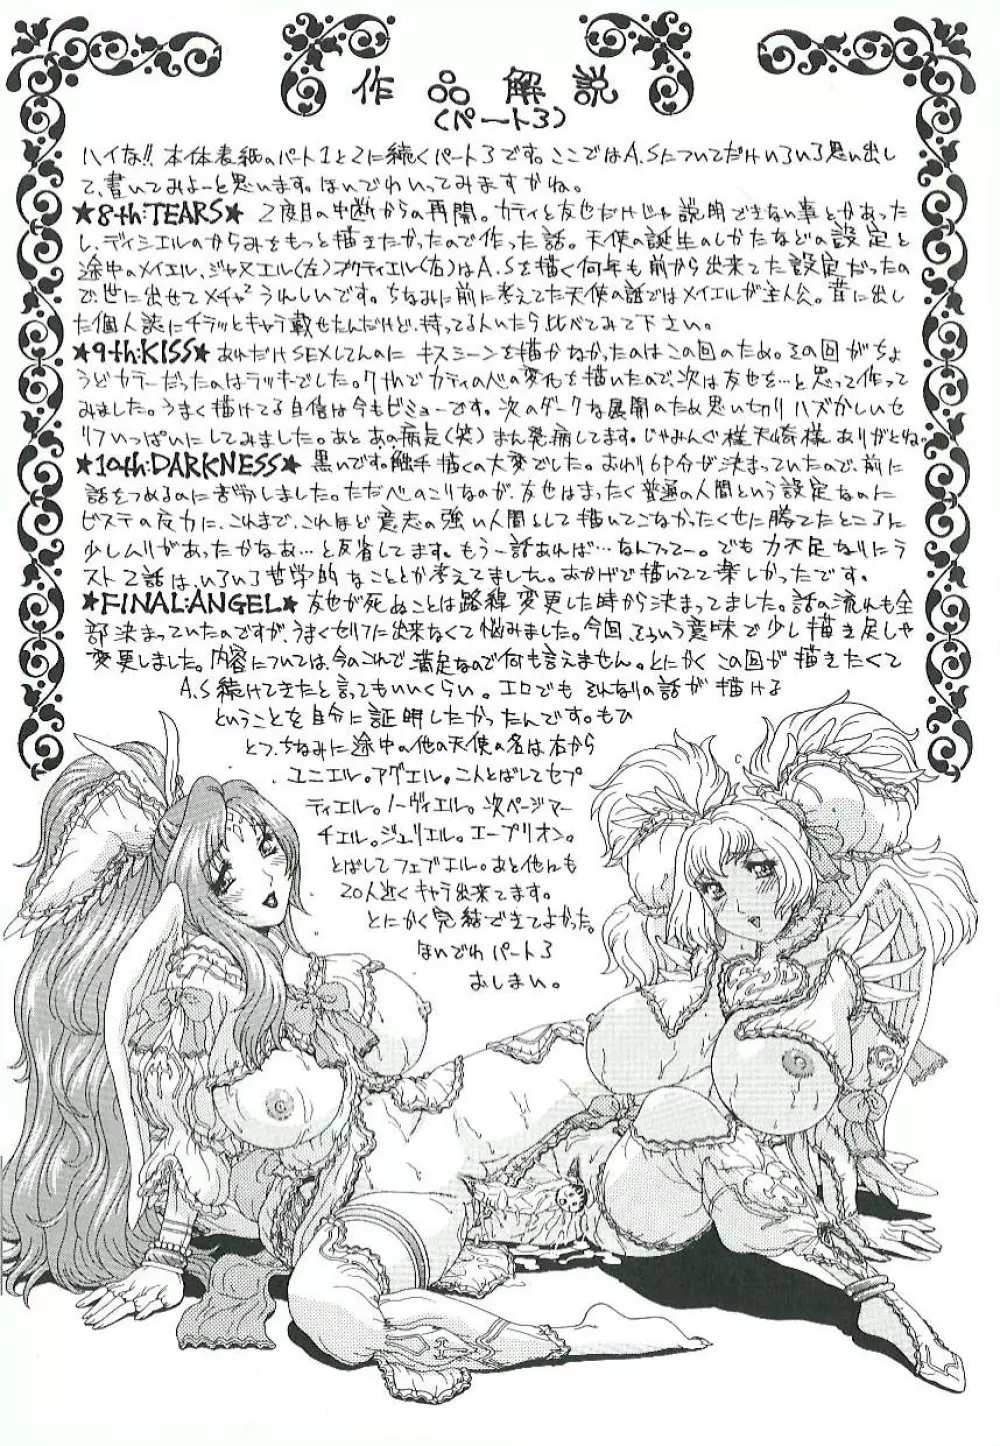 作品解説
(パート3)
ハイな!! 本体表紙のパート1と2に続くパート3です。ここではA.Sについてだけいろいろ思い出し
て、書いてみよーと思います。ほいでわいってみますかね。
★8th:TEARS★ 2度目の中断からの再開。カティと友也だけじゃ説明できない事とかあった
し、ディシエルのからみをもっと描きたかったので作った話。天使の誕生のしかたなどの設定と
途中のメイエル、ジャヌエル(左)アクティエル(右)はA.Sを描く何年も前から出来てた設定だったの
で、世に出せてメチャ²うれしいです。ちなみに前に考えてた天使の話ではメイエルが主人公。昔に出し
た個人誌にチラッとキャラ載せたんだけど、持ってる人いたら比べてみて下さい。
★9th:KISS★ あれだけSEXしてんのに キスシーンを描かなかったのはこの回のため。その回がちょ
うどカラーだったのはラッキーでした。7thでカティの心の変化を描いたので、次は友也を…と思って作って
みました。うまく描けてる自信は今もビミョーです。次のダークな展開のため思い切りハズかしいセ
リフいっぱいにしてみました。あと あの病気(笑)まん発病してます。じゃみんぐ様天崎様ありがとね。
★10th:DARKNESS★ 黒いです。触手 描くの大変でした。おわり6P分が決まっていたので、前に
話をつめるのに苦労しました。ただ心のこりなのが、友也はまったく普通の人間という設定なのに
ビステの反力に、これまで、これほど意志の強い人間として描いてこなかったくせに勝てたところに
少しムリがあったかなあ…と反省してます。もう一話あれば…なんつってー。でも力不足なりにラ
スト2話は、いろいろ哲学的なこととか考えてました。おかげで描いてて楽しかったです。
★FINAL:ANGEL★ 友也が死ぬことは路線変更した時から決まってました。話の流れも全
部決まっていたのですが、うまくセリフに出来なくて悩みました。今回、そういう意味で少し描き足しや
変更しました。内容については、今のこれで、満足なので何も言えません。とにかくこの回が描きたくて
A.S続けてきたと言ってもいいくらい。エロでもそれなりの話が描ける
ということを自分に証明したかったんです。もひ
とつ、ちなみに途中の他の天使の名は右から
ユニエル。アグエル。二人とばしてセプ
ティエル。ノーヴィエル。次ページマー
チエル。ジュリエル。エープリオン。
とばしてフェブエル。あと他にも
20人近くキャラ出来てます。
とにかく完結できてよかった。
ほいでわパート3
おしまい。